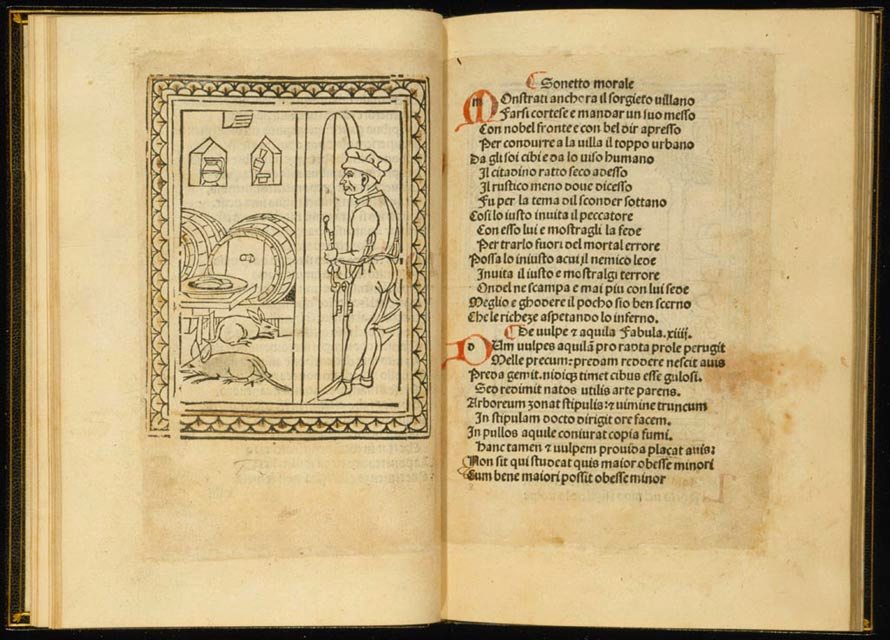 Sonetto morale
Monstrati anchora il sorgieto uillano
Farsi cortese e mandar un suo messo
Con nobel fronte e con bel dir apresso
Per condurre a la uilla il toppo urbano
Da gli soi cibi e da lo uiso humano
Il citadino ratto seco adesso
Il rustico meno doue dicesso
Fu per la tema dil sconder sottano
Cosi lo iusto inuita il peccatore
Con esso lui e mostragli la fede
Per trarlo fuori del mortal errore
Possa lo iniusto a cui il nemico lede
Inuita il iusto e mostralgi terrore
Ondel ne scampa e mai piu con lui sede
Meglio e ghodere il pocho sio ben scerno
Che le richeze aspetando lo inferno.
De uulpe ⁊ aquila Fabula. xiiij.
Dum uulpes aquilã pro rapta prole perurgit
Melle precum: predam reddere nescit auis
Preda gemit. nidiq; timet cibus esse gulosi.
Sed redimit natos utilis arte parens.
Arboreum zonat stipulis: ⁊ uimine truncum
In stipulam docto dirigit ore facem.
In pullos aquile coniurat copia fumi.
Hanc tamen ⁊ uulpem prouida placat auis:
Non sit qui studeat quis maior obesse minori
Cum bene maiori possit obesse minor